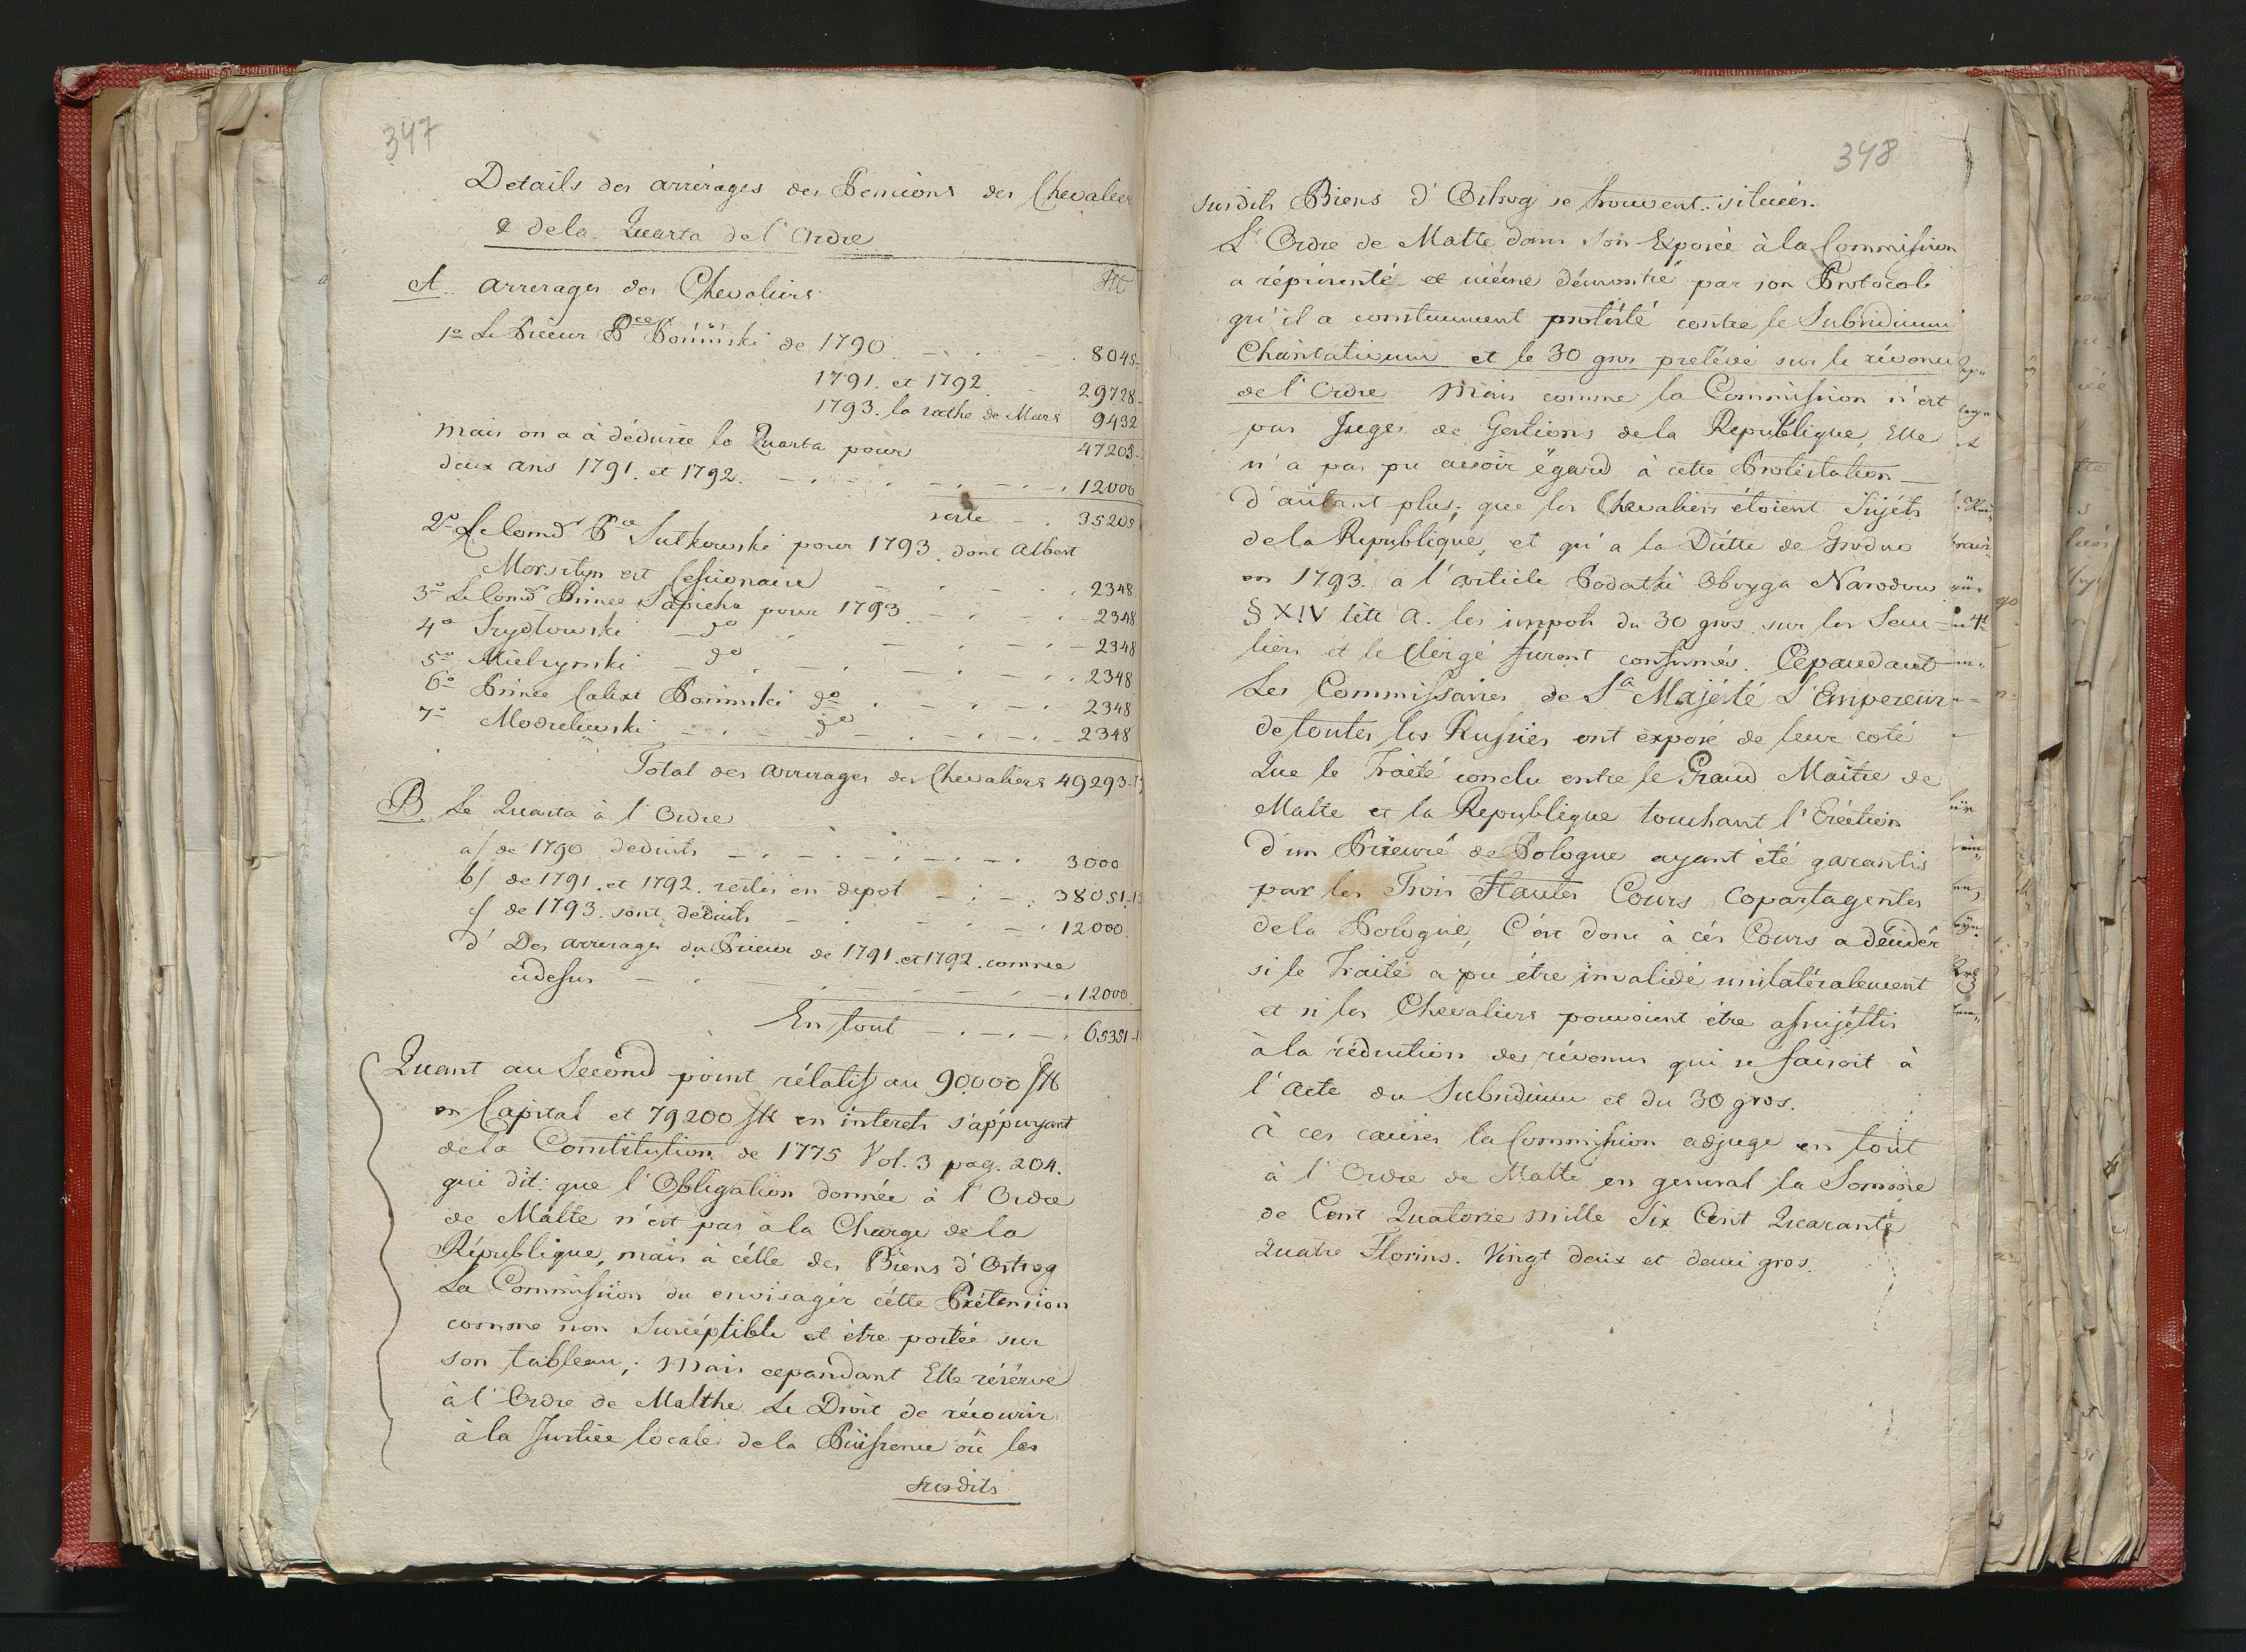 347
Details des arrérages des Pensions des Chevalier
& dela Quarta de l'Ordre
A. arrerages des Chevaliers
1º Le Prieur Pce Poniński de 1790 8045
1791. et 1792 29728
1793. la rathe de Mars 9432
Mais on a à déduire la Quarta pour 47205
deux ans 1791. et 1792. 12000
reste 35205
2º Le Comd Pce Sulkowski pour 1793. dont Albert
Morsztyn est Cessionaire 2348
3º Le Comd Prince Sapieha pour 1793 2348
4º do 2348
5º Mielzynski do 2348
6º Prince Calixt Poninski do 2348
7º Modzelewski do 2348
Total des arrerages des Chevaliers 49293
B. Le Quarta à l'Ordre
a/ de 1790 deduits 3000
b/ de 1791. et 1792. restés en depot 38051
c/ de 1793. sont deduits 12000
d' Des arrerages du Prieur de 1791. et 1792. comme
cidessus 12000
En tout 65351
Quant au Second point rélatif au 90000
en Capital et 79200 en interets s'appuyant
dela Constitution de 1775 Vol. 3 pag. 204.
qui dit: que l'Obligation donnée à l'Ordre
de Malte n'est pas à la Charge de la
République, mais à célle des Biens d'Ostrog
La Commission du envisagér cétte Prétension
comme non Suscéptible et être portée sur
son tableau; Mais cepandant Elle résérve
à l'Ordre de Malthe Le Droit de récourir
à la Justice locale dela Puissence où les
susdits
348
susdits Biens d'Ostrog se trouvent situées.
L'Ordre de Malte dans son Exposée à la Commission
a réprésenté et même démontré par son Protocole
qu'il a constamment protésté contre le Subsidium
Charitativum et le 30 gros prelévé sur le révenu
de l'Ordre Mais comme la Commission n'est
pas Juges de Gestions dela Republique, Elle
n'a pas pu avoir égard à cette Protestation
d'autant plus, que les Chevaliers étoient Sujéts
dela Republique, et qu'a la Diétte de Grodno
en 1793. à l'article Podatki Oboyga Narodow
§ XIV a. les impots du 30 gros sur les Secu-
liers et le Clérgé furent confirmés. Cepandant
Les Commissaires de Sa Majésté L'Empereur
de toutes les Russies ont exposé de leur coté
Que le Traité conclu entre le Grand Maître de
Malte et la Republique touchant l'Eréction
d'un Prieuré de Pologne ayant été garantis
par les Trois Hautes Cours Copartagentes
dela Pologne, C'ést donc à cés Cours a décidér
si le Traité a pu étre invalidé unilatéralement
et si les Chevaliers pouvoient étre assujéttis
à la réduction des révenus qui se faisoit à
l'acte du Subsidium et du 30 gros.
à ces causes la Commission adjuge en tout
à l'Ordre de Malte en general la Somme
de Cent Quatorze Mille Six Cent Quarante
Quatre Florins. Vingt deux et demi gros.